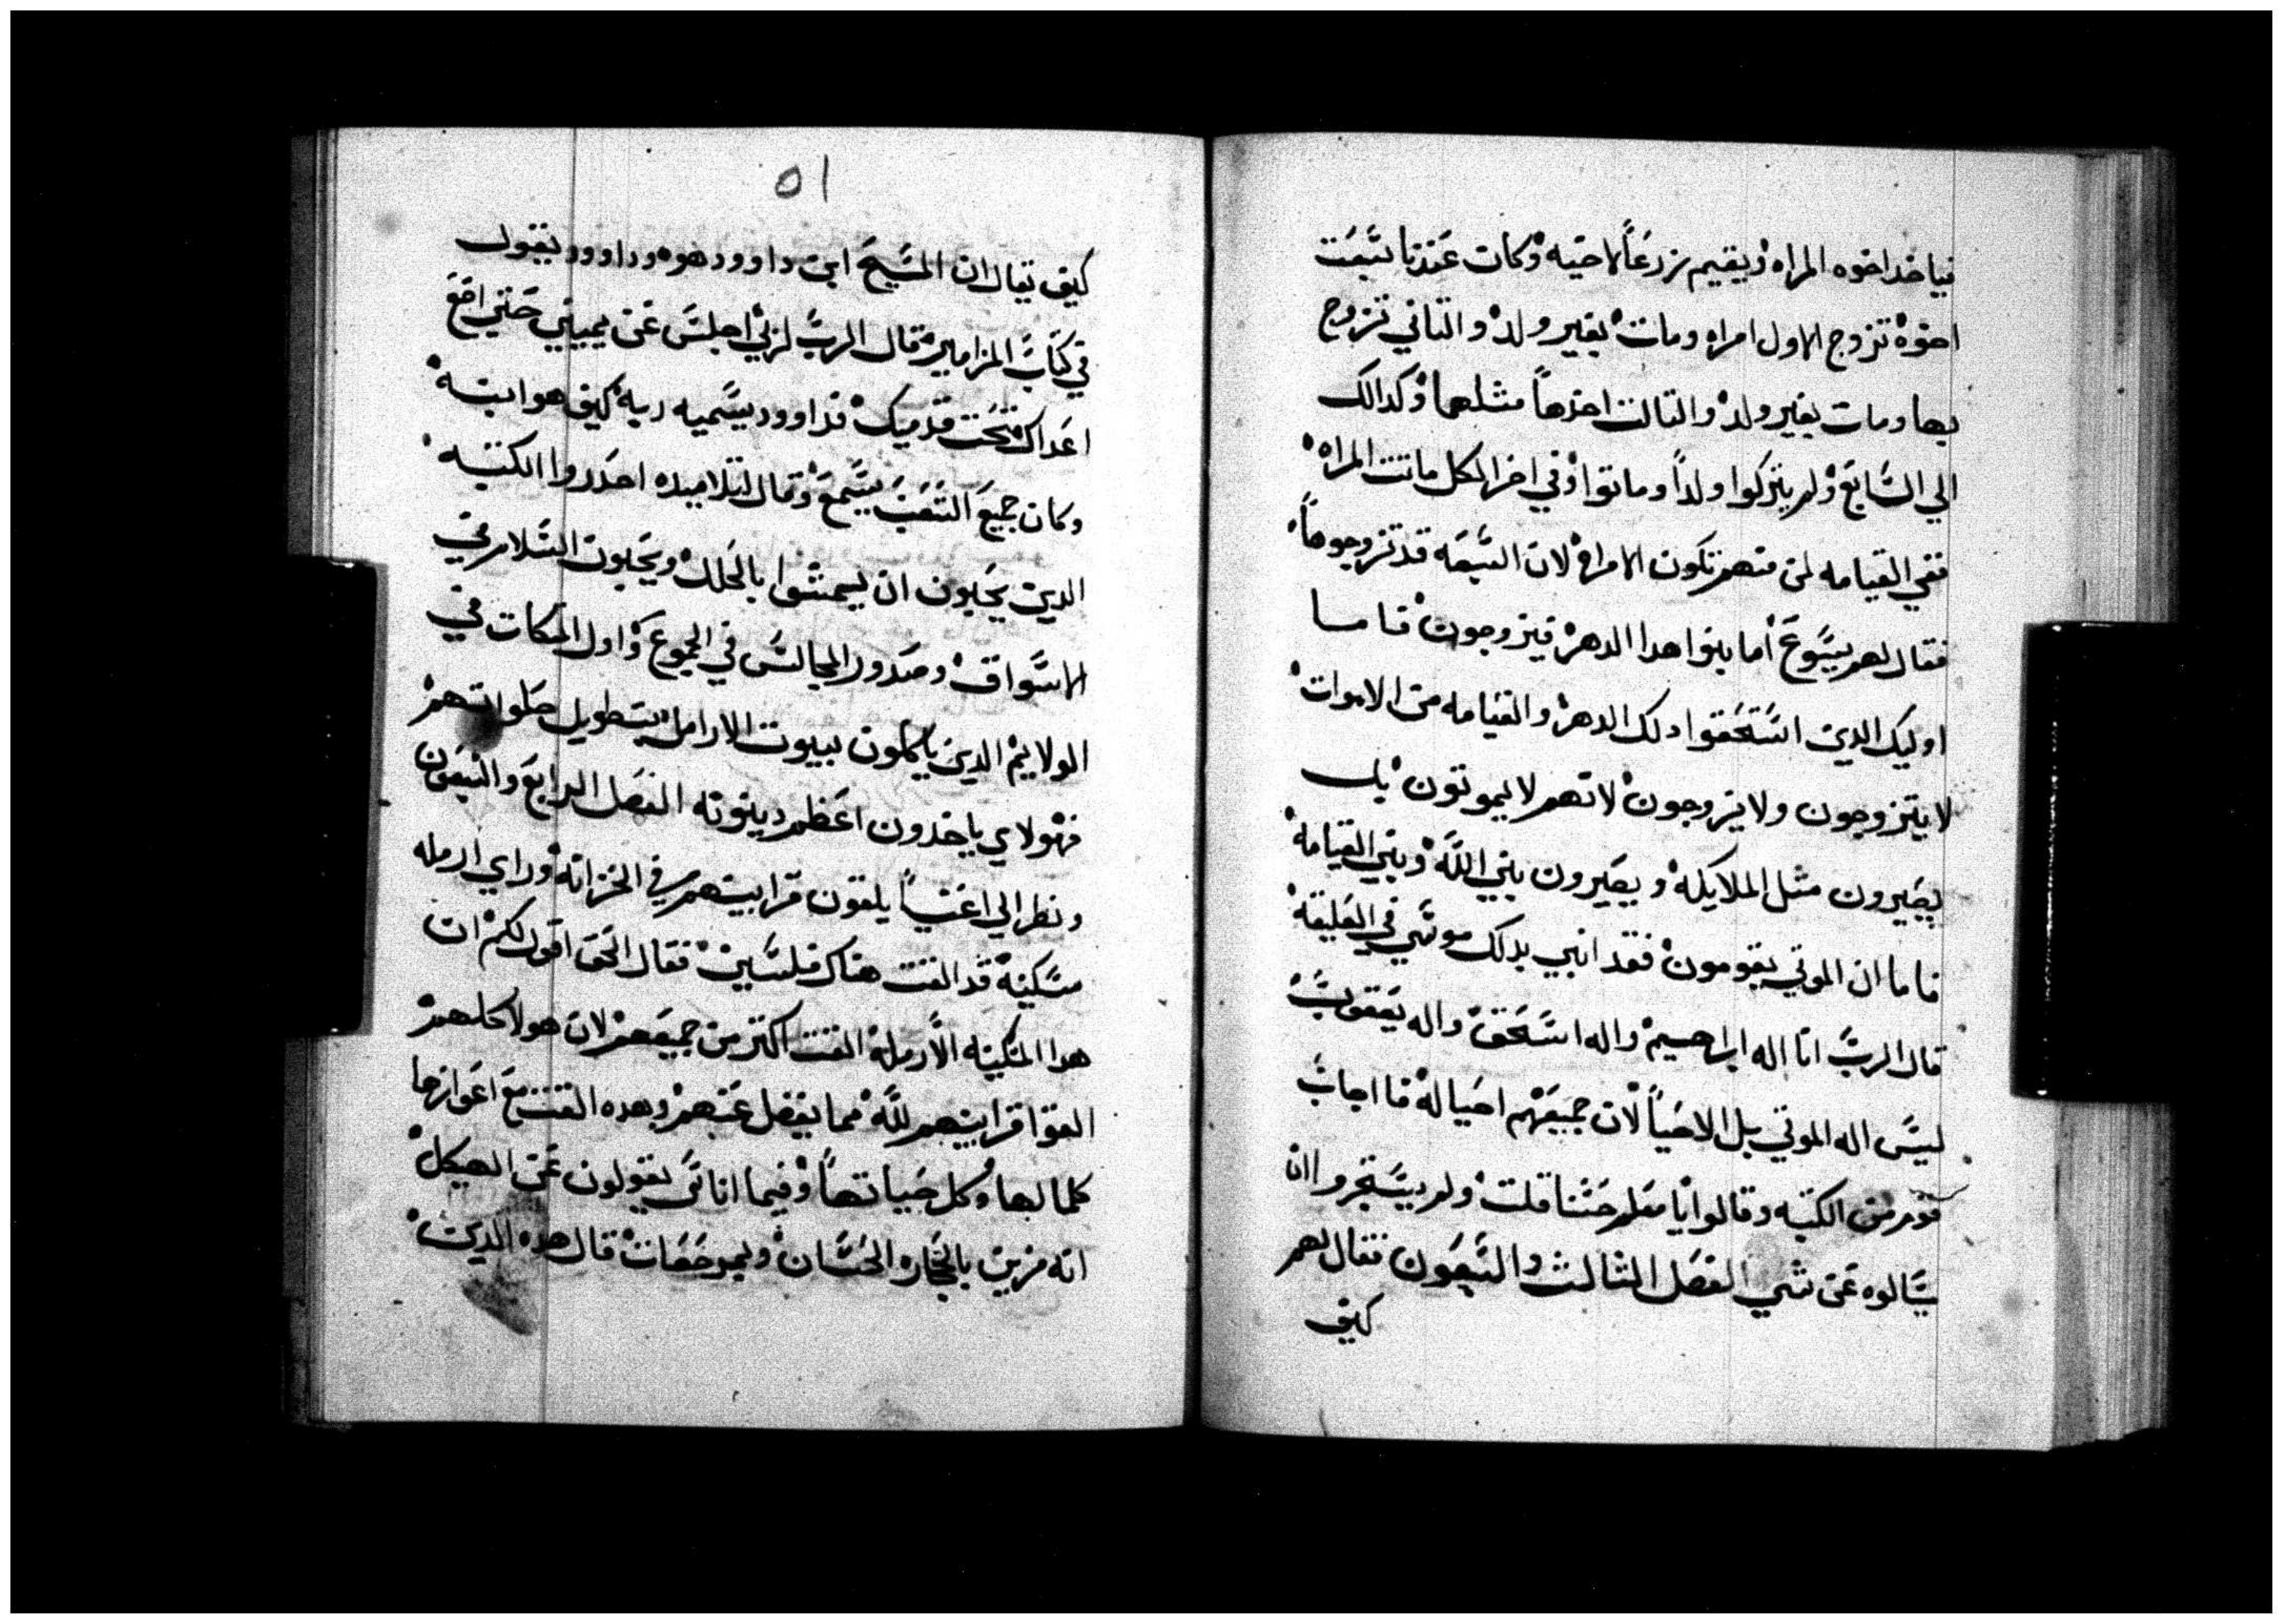 فياخد اخوه المراه ويقيم زرعاً لاخيه وكان عندنا سبعت
اخوة تزوج الاول امراه ومات بغير ولد والتاني تزوج
بها ومات بغير ولد والتالت اخدها مثلهما وكدالك
الي السابع ولم يتركوا ولداً وماتوا وفي اخر الكل ماتت المراه
ففي القيامه لمن منهم تكون الامراه لان السبعه قد تزوجوها
فقال لهم يسوع اما بنوا هدا الدهر فيزوجون فاما
اوليك الدين استحقوا دلك الدهر والقيامه من الاموات
لا يتزوجون ولا يزوجون لانهم لا يموتون بل
يصيرون مثل الملايكه ويصيرون بني الله وبني القيامه
فاما ان الموتي يقومون فقد انبي بدلك موسي في العليقه
قال الرب انا اله ابراهيم واله اسحق واله يعقوب
ليس اله الموتي بل الاحيا لان جميعهم احيا له فاجاب
قوم من الكتبه وقالوا يا معلم حسنا قلت ولم يستجروا ان
يسالوه عن شي الفصل الثالث والسبعون فقال لهم
كيف
٥١
كيف يقال ان المسيح ابن داوود هوه وداوود يقول
في كتاب المزامير قال الرب لربي اجلس عن يميني حتي اضع
اعداك تحت قدميك فداوود يسميه ربه كيف هو ابنه
وكان جميع الشعب يسمع وقال لتلاميده احدروا الكتبه
الدين يحبون ان يمشوا بالحلل ويحبون السلام في
الاسواق وصدور المجالس في الجموع واول المتكات في
الولايم الدين ياكلون بيوت الارامل بتطويل صلواتهم
فهولاي ياخدون اعظم دينونه الفصل الرابع والسبعون
ونظر الي اغنيا يلقون قرابينهم في الخزانه وراي ارمله
مسكينه قد القت هناك فلسين فقال الحق اقول لكم ان
هدا المسكينه الارمله القت اكتر من جميعهم لان هولا كلهم
القوا قرابينهم لله مما يفضل عنهم وهده القت مع اعوازها
كلما لها وكل حياتها وفيما اناس يقولون عن الهيكل
انه مزين بالحجاره الحسان وبمرخفات قال هده الدين